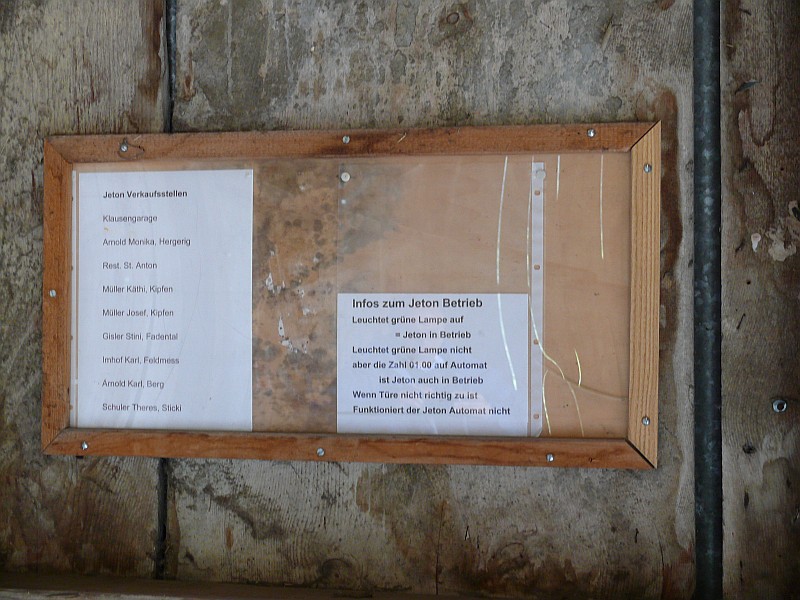 Jeton Verkaufsstellen
Klausengarage
Arnold Monika, Hergerig
Rest. St. Anton
Müller Käthi, Kipfen
Müller Josef, Kipfen
Gisler Stini, Fadental
Imhof Karl, Feldmess
Arnold Karl, Berg
Schuler Theres, Sticki
Infos zum Jeton Betrieb
Leuchtet grüne Lampe auf
= Jeton in Betrieb
Leuchtet grüne Lampe nicht
aber die Zahl 01.00 auf Automat
ist Jeton auch in Betrieb
Wenn Türe nicht richtig zu ist
Funktioniert der Jeton Automat nicht